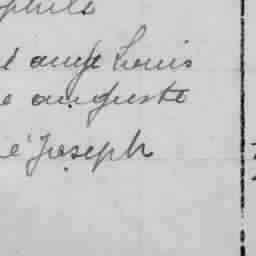 phile
l auge Louis
e auguste
é Joseph